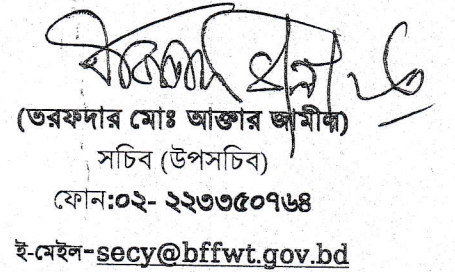 (তরফদার মোঃ আক্তার জামীল)
সচিব (উপসচিব)
ফোন:০২- ২২৩৩৫০৭৬৪
ই-মেইল-secy@bffwt.gov.bd